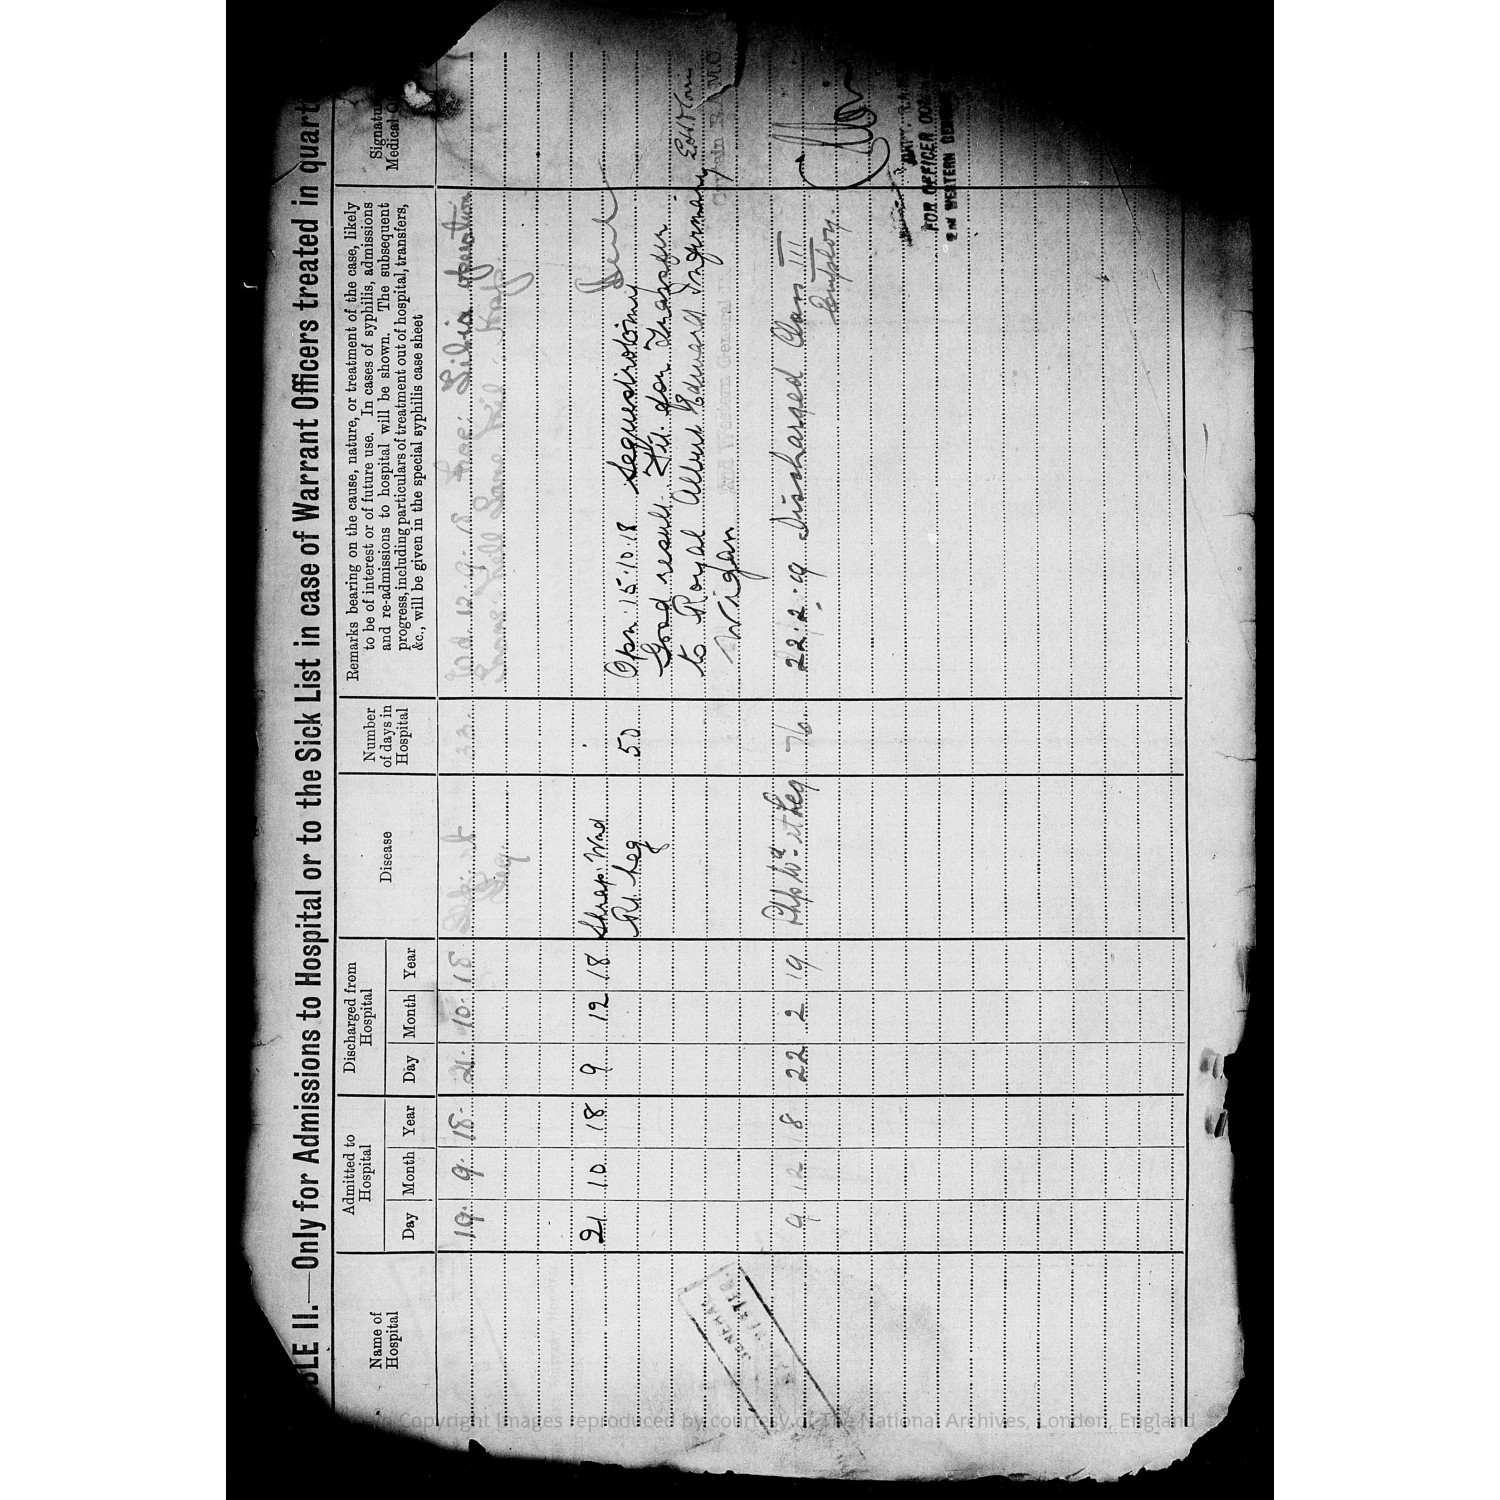 BLE II.—Only for Admissions to Hospital or to the Sick List in case of Warrant Officers treated in quart
Name of
Hospital
Admitted to
Hospital
Day Month Year
Discharged from
Hospital
Day Month Year
Disease
Number
of days in
Hospital
Remarks bearing on the cause, nature, or treatment of the case, likely
to be of interest or of future use. In cases of syphilis, admissions
and re-admissions to hospital will be shown. The subsequent
progress, including particulars of treatment out of hospital, transfers,
&c., will be given in the special syphilis case sheet
Signatu
Medical O
19. 9. 18. 21. 10. 18 22. 12. 9. 18 Tibia operation
21 10 18 9 12 18 Shrap. Wnd
Rt. Leg 50 Opn. 15.10.18 Sequestrotomy
Good result. Fit for Transfer
to Royal Albert Edward Infirmary
Wigan
Captain R.A.M.C.
2nd Western General
9 12 18 22 2 19 Leg 76 22.2.19 Discharged Class III
Employ.
FOR OFFICER CO
2nd WESTERN GENER
Copyright Images reproduced by courtesy of The National Archives, London, England